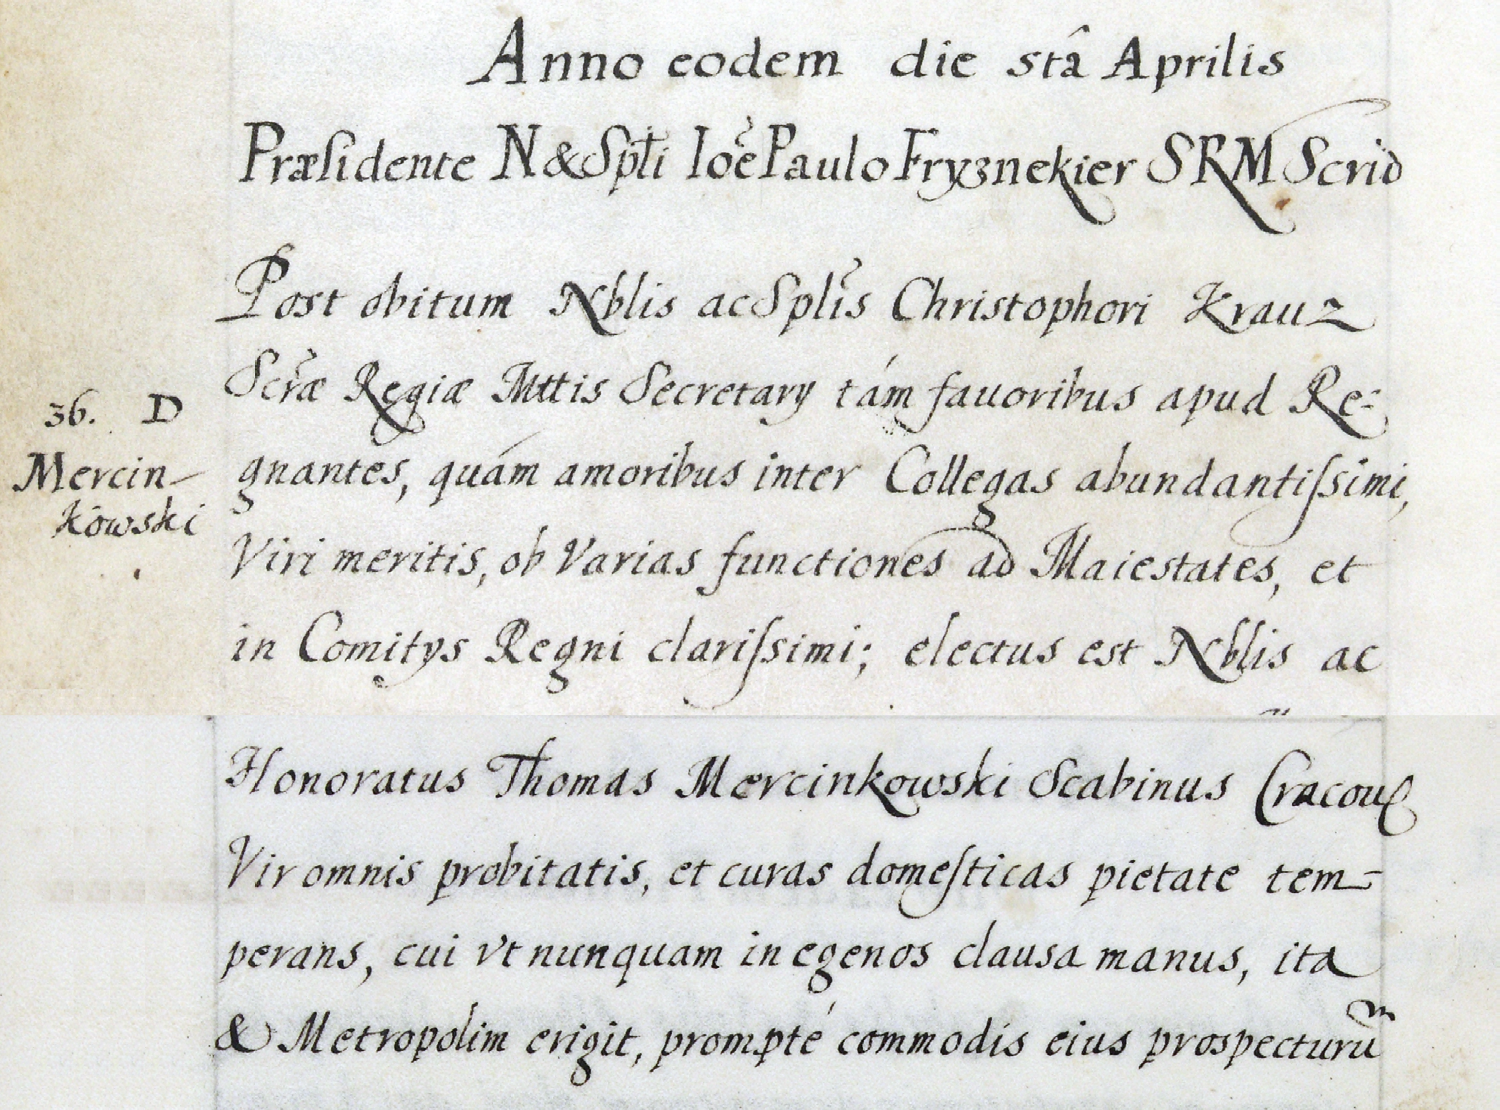 Anno eodem die stâ Aprilis
Præsidente N & Splti Ioẽ Paulo Fryznekier SRM Scrið
Post obitum Nblis ac Splis Christophori Krauz
Scræ Regiæ Mttis Secretary tám fauoribus apud Re:
36. D
Mercin-
kowski
gnantes, quám amoribus inter Collegas abundantissimi,
Viri meritis, ob Varias functiones ad Maiestates, et
in Comitys Regni clarissimi; electus est Nblis ac
Honoratus Thomas Mercinkowski Scabinus Cracou
Vir omnis probitatis, et curas domesticas pietate tem-
perans, cui vt nunquam in egenos clausa manus, ita
& Metropolim erigit, prompté commodis eius prospecturũ